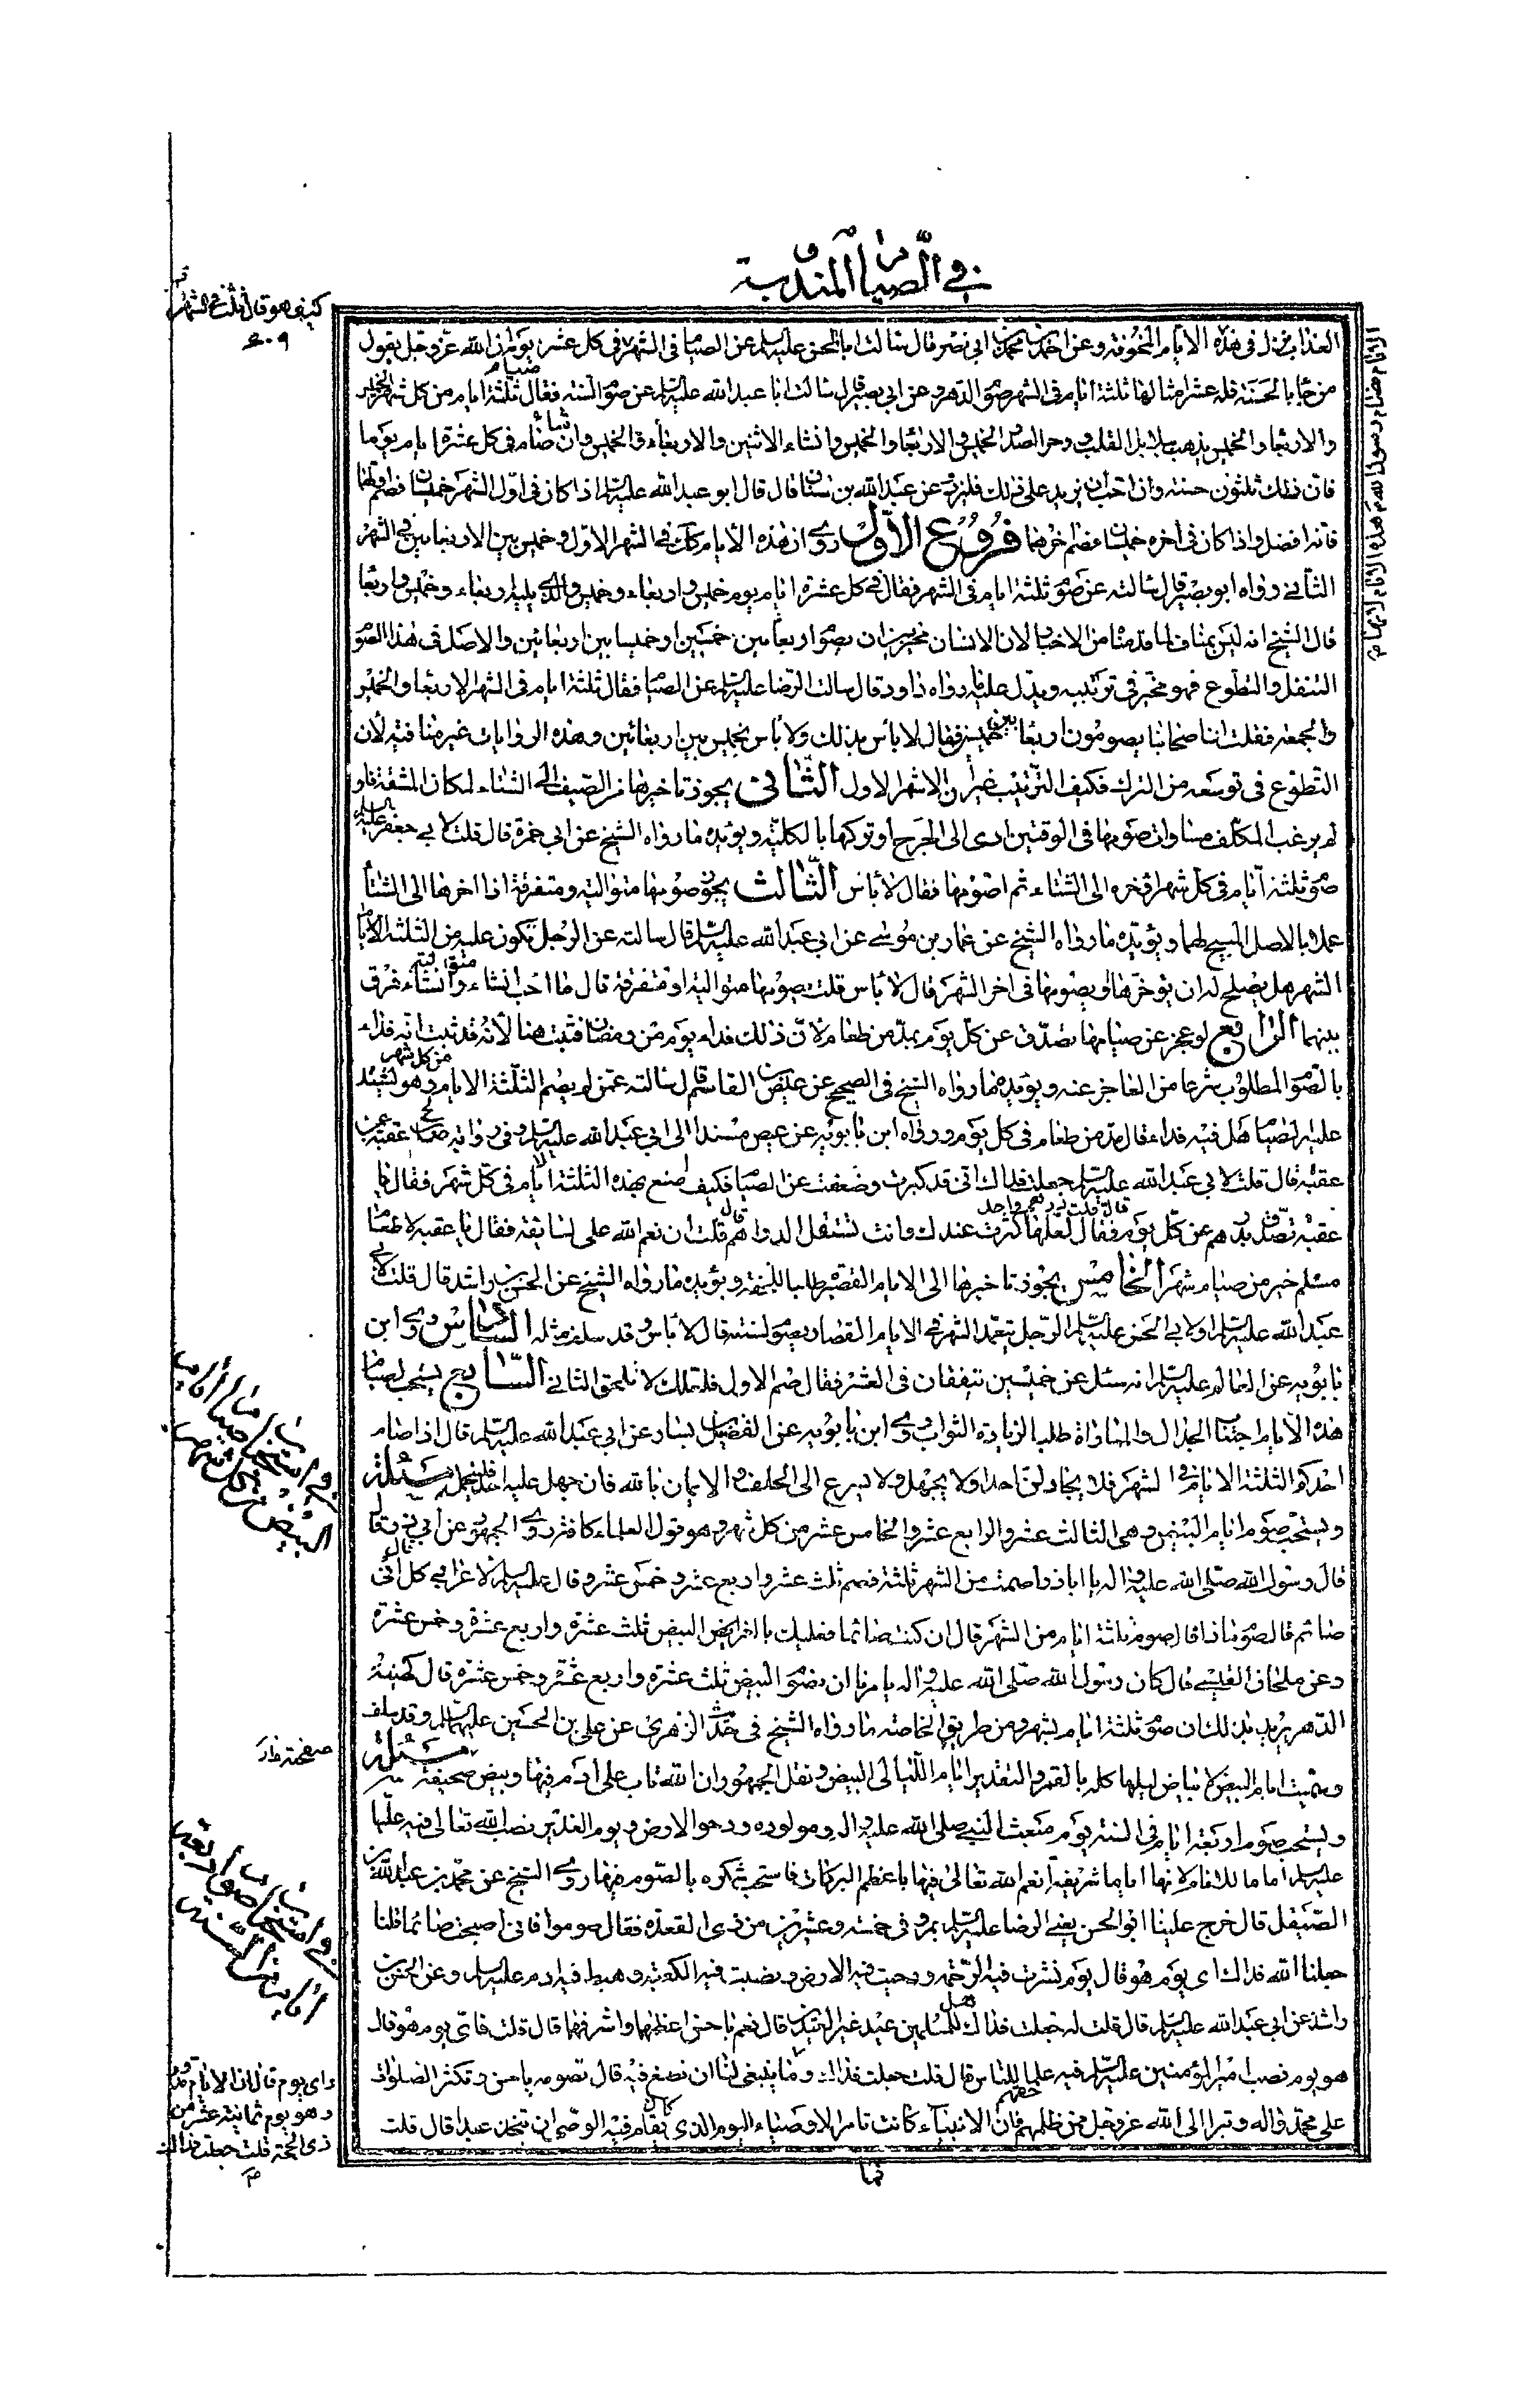 في الصيام المندوبة
العذاب نزل في هذه الايام المخوفة وعن احمد بن محمد بن ابي نصر قال سالت ابا الحسن عليه السلم عن الصيام في الشهر في كل عشر يوم ان الله عز وجل يقول
من جاء بالحسنة فله عشر امثالها ثلثة ايام في الشهر صوم الدهر وعن ابي بصير قال سالت ابا عبد الله عليه السلم عن صوم السنة فقال صيام ثلثة ايام من كل شهر الخميس
والاربعاء والخميس يذهب ببلابل القلب ووحر الصدر الخميس والاربعاء والخميس وان شاء الاثنين والاربعاء والخميس وان شاء صام في كل عشرة ايام يوما
فان ذلك ثلثون حسنة وان احب ان يزيد على ذلك فليزد وعن عبد الله بن سنان قال قال ابو عبد الله عليه السلم اذا كان في اول الشهر خميسان فصم اولهما
فانه افضل واذا كان في اخره خميسان فصم اخرهما فروع الاول روى ان هذه الايام كانت في الشهر الاول وخميس بين الاربعاءين في الشهر
الثاني رواه ابو بصير قال سالته عن صوم ثلثة ايام في الشهر فقال في كل عشرة ايام يوم خميس واربعاء وخميس والذي يليه اربعاء وخميس واربعاء
قال الشيخ انه ليس بمناف لما قدمناه من الاخبار لان الانسان مخير بين ان يصوم اربعاء بين خميسين او خميسا بين اربعائين والاصل في هذا الصوم
التنفل والتطوع فهو مخير في ترتيبه ويدل عليه ما رواه داود قال سالت الرضا عليه السلم عن الصيام فقال ثلثة ايام في الشهر الاربعاء والخميس
والجمعة فقلت ان اصحابنا يصومون اربعاء بين خميسين فقال لا باس بذلك ولا باس بخميس بين اربعائين وهذه الروايات غير منافية لان
التطوع في توسعه من الترك فكيف الترتيب غير ان الاشهر الاول الثاني يجوز تاخيرها من الصيف الى الشتاء لمكان المشقة فلو
لم يرغب المكلف منا وان صومها في الوقتين ادى الى الحرج او تركها بالكلية ويؤيده ما رواه الشيخ عن ابي حمزة قال قلت لابي جعفر عليه السلم
صوم ثلثة ايام في كل شهر اؤخره الى الشتاء ثم اصومها فقال لا باس الثالث يجوز صومها متوالية ومتفرقة اذا اخرها الى الشتاء
عملا بالاصل المبيح لهما ويؤيده ما رواه الشيخ عن عمار بن موسى عن ابي عبد الله عليه السلم قال سالته عن الرجل تكون عليه من الثلثة الايام
الشهر هل يصلح له ان يؤخرها او يصومها في اخر الشهر قال لا باس قلت يصومها متوالية او متفرقة قال ما احب ان شاء متوالية وان شاء فرق
بينهما الرابع لو عجز عن صيامها تصدق عن كل يوم بمد من طعام لان ذلك فداء يوم من رمضان فثبت هنا لانه قد ثبت انه فداء
بالصوم المطلوب شرعا من العاجز عنه ويؤيده ما رواه الشيخ في الصحيح عن عيص بن القاسم قال سالته عمن لم يصم الثلثة الايام من كل شهر وهو يشتد
عليه الصيام هل فيه فداء قال مد من طعام في كل يوم ورواه ابن بابويه عن عيص مسندا الى ابي عبد الله عليه السلم وفي رواية صالح بن عقبة عن
عقبة قال قلت لابي عبد الله عليه السلم جعلت فداك اني قد كبرت وضعفت عن الصيام فكيف اصنع بهذه الثلثة الايام في كل شهر فقال يا
عقبة تصدق بدرهم عن كل يوم قال قلت درهم واحد فقال لعلها كثرت عندك وانت تستقل الدراهم قال قلت ان نعم الله على لسابغة فقال يا عقبة لاطعام
مسلم خير من صيام شهر الخامس يجوز تاخيرها الى الايام القصيرة طلبا للخفة ويؤيده ما رواه الشيخ عن الحسن بن راشد قال قلت لابي
عبد الله عليه السلم او لابي الحسن عليه السلم الرجل يتعمد الشهر في الايام القصار يصوم لسنته قال لا باس وقد سلف مثله السادس روى ابن
بابويه عن العالم عليه السلم انه سئل عن خميسين يتفقان في العشر فقال صم الاول فلعلك لا تلحق الثاني السابع يستحب لصيام
هذه الايام اجتناب الجدال والمماراة طلبا لزيادة الثواب روى ابن بابويه عن الفضيل بن يسار عن ابي عبد الله عليه السلم قال اذا صام
احدكم الثلثة الايام في الشهر فلا يجادلن احدا ولا يجهل ولا يسرع الى الحلف والايمان بالله فان جهل عليه احد فليتحمل مسئلة
ويستحب صوم ايام البيض وهي الثالث عشر والرابع عشر والخامس عشر من كل شهر وهو قول العلماء كافة روى الجمهور عن ابي ذر قال
قال رسول الله صلى الله عليه واله يا ابا ذر اذا صمت من الشهر ثلثة فصم ثلث عشر واربع عشر وخمس عشر وقال عليه السلم لاعرابي كل قال اني
صائم قال صوم ماذا قال صوم ثلثة ايام من الشهر قال ان كنت صائما فعليك بالغر البيض ثلث عشرة واربع عشرة وخمس عشرة
وعن ملحان القيسي قال كان رسول الله صلى الله عليه واله يامرنا ان نصوم البيض ثلث عشرة واربع عشرة وخمس عشرة قال كهيئة
الدهر يريد بذلك ان صوم ثلثة ايام لشهر ومن طريق الخاصة ما رواه الشيخ في حديث الزهري عن علي بن الحسين عليهما السلم وقد سلف
وسميت ايام البيض لابياض ليلها كله بالقمر والتقدير ايام الليالي البيض ونقل الجمهور ان الله تاب على ادم فيها وبيض صحيفته مسئلة
ويستحب صوم اربعة ايام في السنة يوم مبعث النبي صلى الله عليه واله ومولوده ودحو الارض ويوم الغدير نصب الله تعالى فيه عليا
عليه السلم اماما للانام لانها اياما شريفة انعم الله تعالى فيها باعظم البركات فاستحب شكره بالصوم فيها روى الشيخ عن محمد بن عبد الله بن
الصيقل قال خرج علينا ابو الحسن يعني الرضا عليه السلم بمرو في خمسة وعشرين من ذي القعدة فقال صوموا فاني اصبحت صائما قلنا
جعلنا الله فداك اي يوم هو قال يوم نشرت فيه الرحمة ودحيت فيه الارض ونصبت فيه الكعبة وهبط فيه ادم عليه السلم وعن الحسن بن
راشد عن ابي عبد الله عليه السلم قال قلت له جعلت فداك هل للمسلمين عيد غير العيدين قال نعم يا حسن اعظمهما واشرفهما قال قلت فاي يوم هو قال
هو يوم نصب امير المؤمنين عليه السلم فيه علما للناس قال قلت جعلت فداك وما ينبغي لنا ان نصنع فيه قال تصومه يا حسن وتكثر الصلوات
على محمد واله وتبرا الى الله عز وجل ممن ظلمهم حقهم فان الانبياء كانت تامر الاوصياء اليوم الذي كان يقام فيه الوصي ان يتخذ عيدا قال قلت
فما
كيف هو قال ثلث في الشهر
٦٠٩
الايام صام رسول الله م هذه الايام لانها م
في استحباب صيام ايام
البيض من كل شهر
صفحة دار
في استحباب صوم اربعة
ايام في السنة
واي يوم قال ان الايام تدور
وهو يوم ثمانية عشر من
ذي الحجة قلت جعلت فداك
م